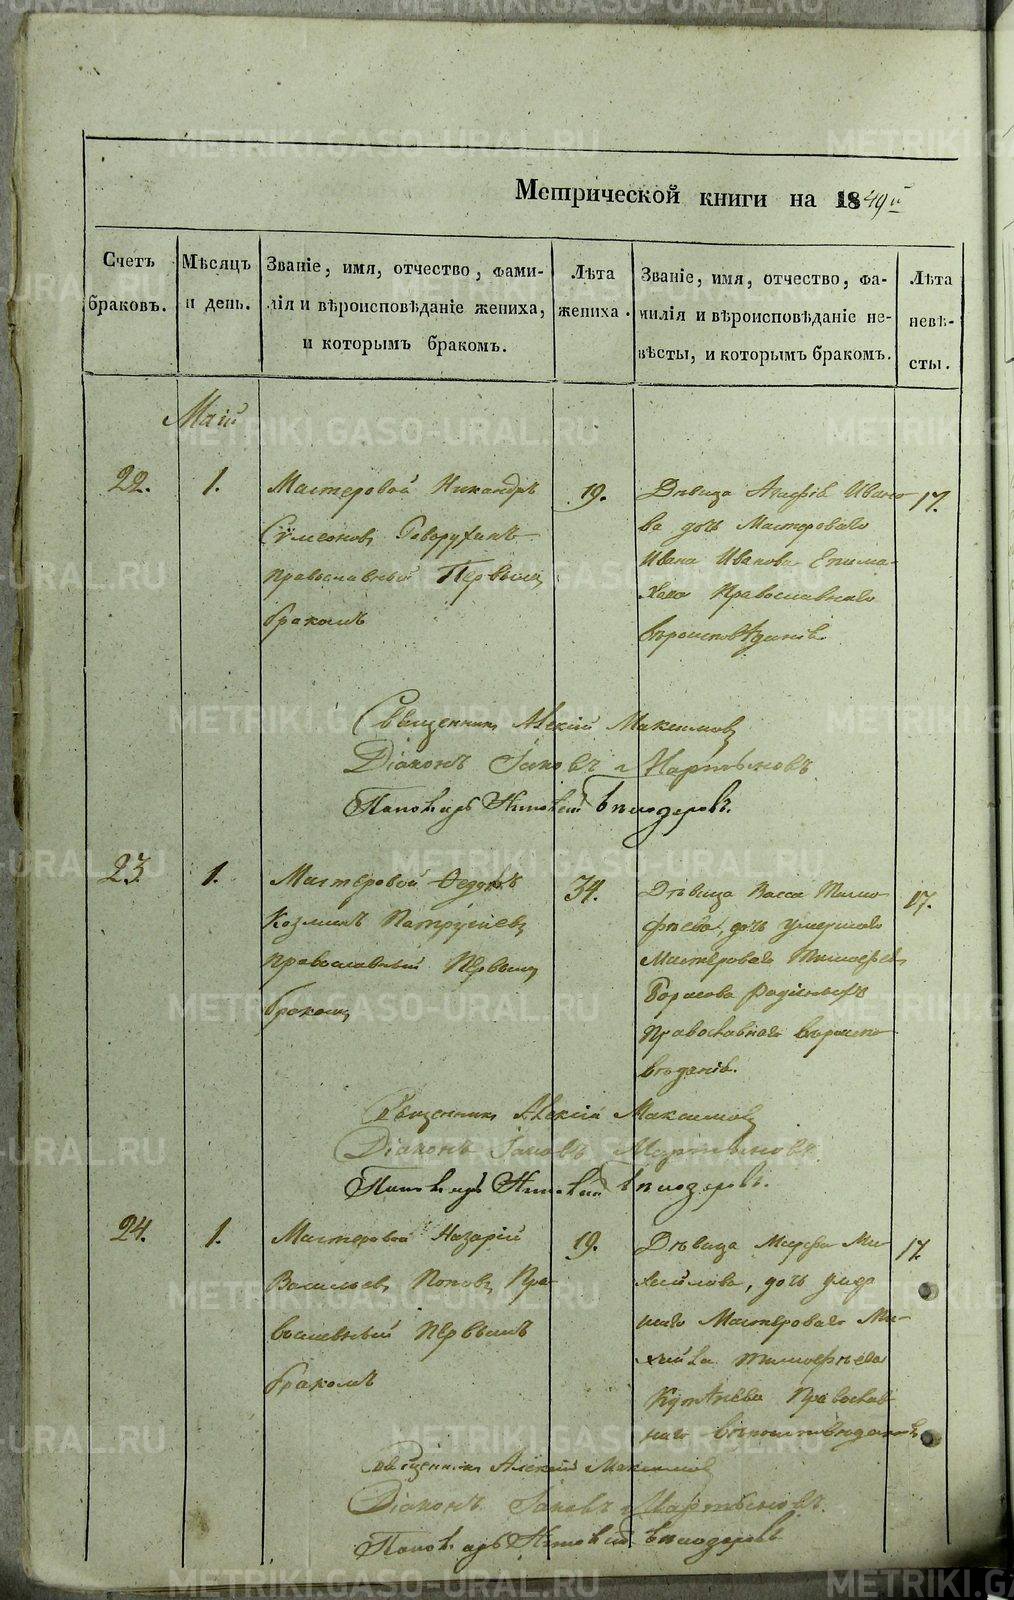 Метрической книги на 1849й
Счетъ браковъ.
Мѣсяцъ и день.
Званіе, имя, отчество, фами-
лія и вѣроисповѣданіе жениха,
и которымъ бракомъ.
Лѣта жениха.
Званіе, имя, отчество, фа-
милія и вѣроисповѣданіе не-
вѣсты, и которымъ бракомъ.
Лѣта невѣ-
сты.
Май
22.
1.
Мастеровой Никандръ
Сѵмеоновъ Говорухинъ
православный Первымъ
бракомъ
19.
Дѣвица Ивано
ва дочь Мастероваго
Ивана Иванова Епима-
хова Православнаго
вѣроисповѣданія
17.
Священникъ Алексій Максимовъ
Діаконъ Іаковъ Мартыновъ
Пономарь Бѣлозеровъ.
23.
1.
Мастеровой Ѳедоръ
Козминъ Патрушевъ
православный Первымъ
бракомъ
34.
Дѣвица Васса Тимо
фѣева, дочь умершаго
Мастероваго Тимофея
Борисова
Православнаго вѣроиспо
вѣданія.
17.
Священникъ Алексій Максимовъ
Діаконъ Іаковъ Мартыновъ
Пономарь Бѣлозеровъ.
24.
1.
Мастеровой Назарій
Васильевъ Поповъ Пра
вославный Первымъ
бракомъ
19.
Дѣвица Марфа Ми
хайлова, дочь
Мастероваго Ми-
хайла Тимофѣева
Православ
наго вѣроисповѣданія
17.
Священникъ Алексій Максимовъ
Діаконъ Іаковъ Мартыновъ.
Пономарь Бѣлозеровъ
METRIKI.GASO-URAL.RU